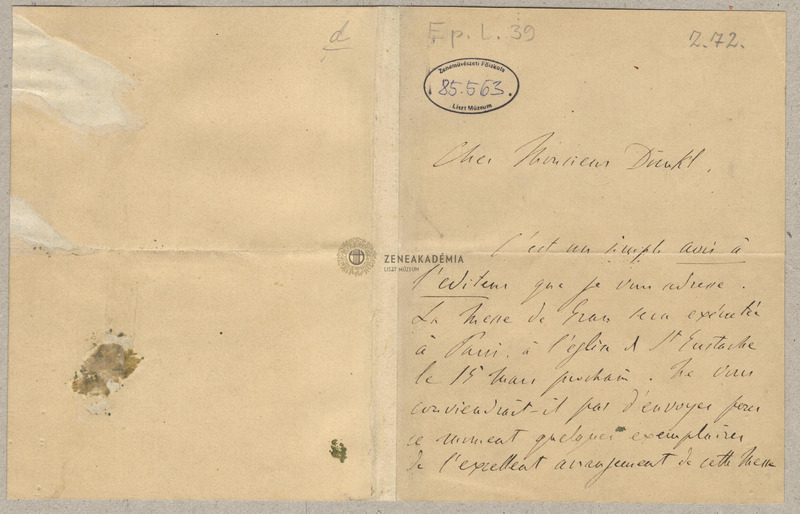 d
Ep. L. 39
2.72.
Zeneművészeti Főiskola
85.563.
Liszt Múzeum
Cher Monsieur Dunkl,
C'est un simple avis à
l'editeur que je vous adresse.
La Messe de Gran sera exécutée
à Paris, à l'église de St Eustache
le 15 Mars prochain. Ne vous
conviendrait-il pas d'envoyer pour
ce moment quelques exemplaires
de l'excellent arrangement de cette Messe
ZENEAKADÉMIA
LISZT MÚZEUM